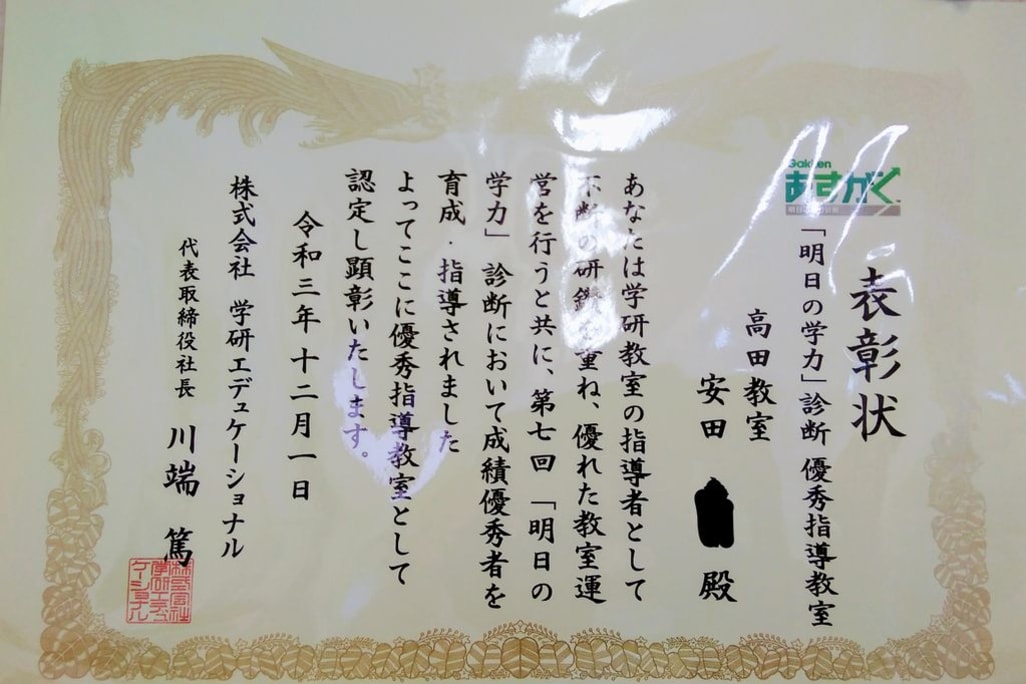 表彰状
Gakken
あすがく
「明日の学力」診断 優秀指導教室
高田教室
安田 殿
あなたは学研教室の指導者として
不断の研鑽を重ね、優れた教室運
営を行うと共に、第七回「明日の
学力」診断において成績優秀者を
育成・指導されました
よってここに優秀指導教室として
認定し顕彰いたします。
令和三年十二月一日
株式会社 学研エデュケーショナル
代表取締役社長 川端 篤
株式会社
学研エデュ
ケーショナル